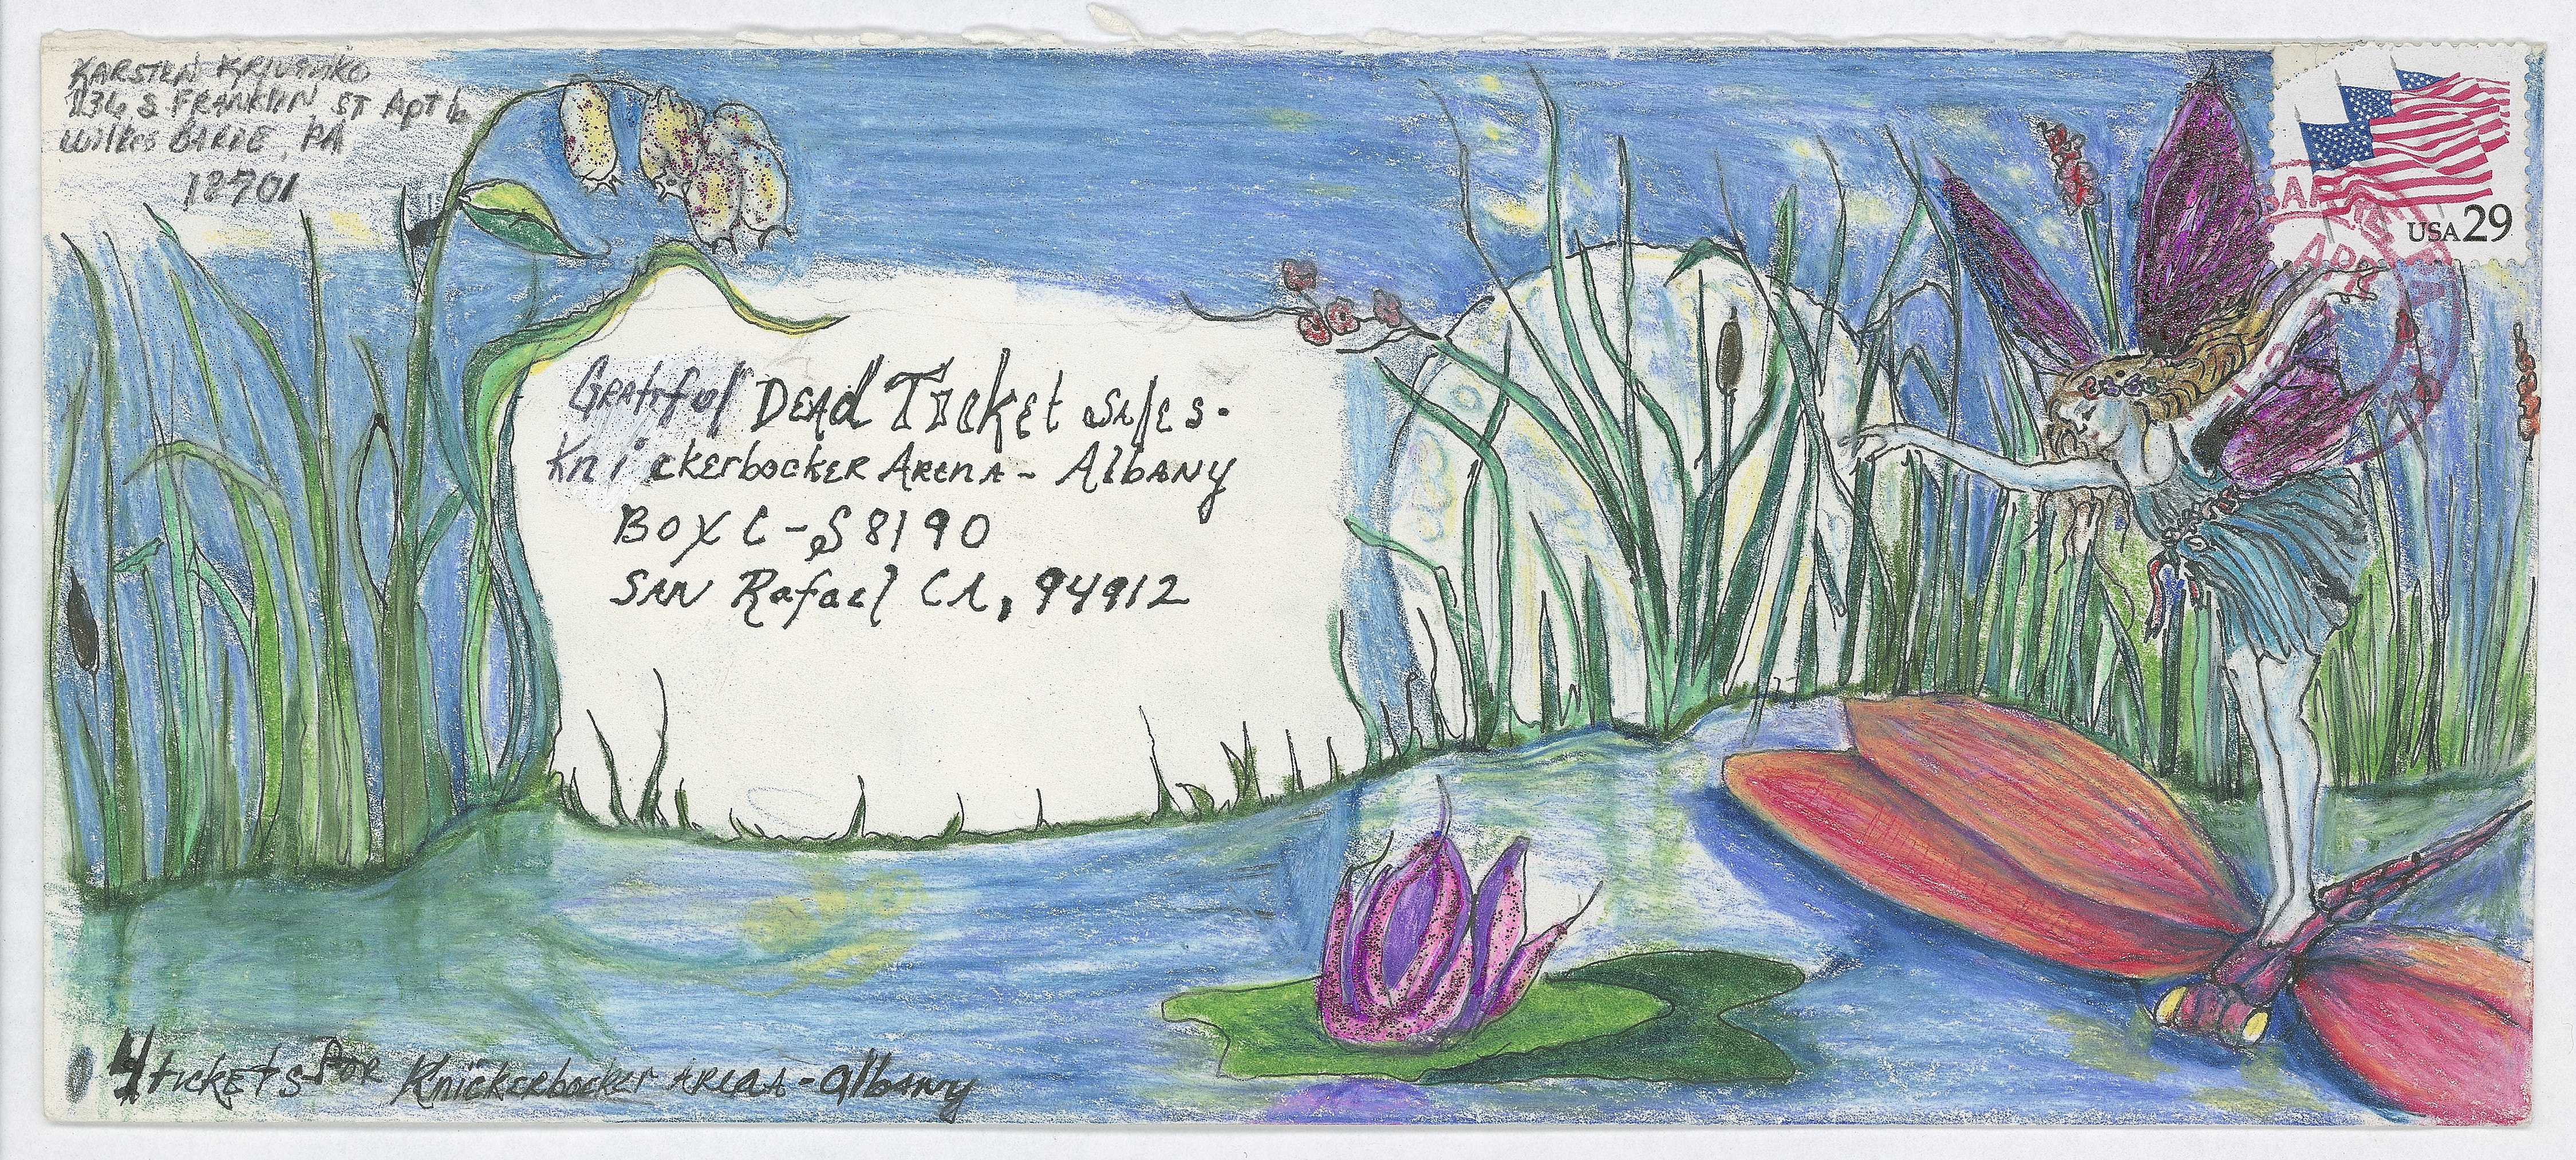 KARSTEN KRIVENKO
236 S FRANKLIN ST Apt 6
Wilkes BARRE, PA
18701
USA 29
SAN RAFAEL
APR
Grateful DEAD Ticket SAlEs.
KnickerbockER AREnA - AlbANY
Box C-S 8190
SAN Rafael CA, 94912
4 tickEts FOR Knickerbocker AREnA - AlbANy